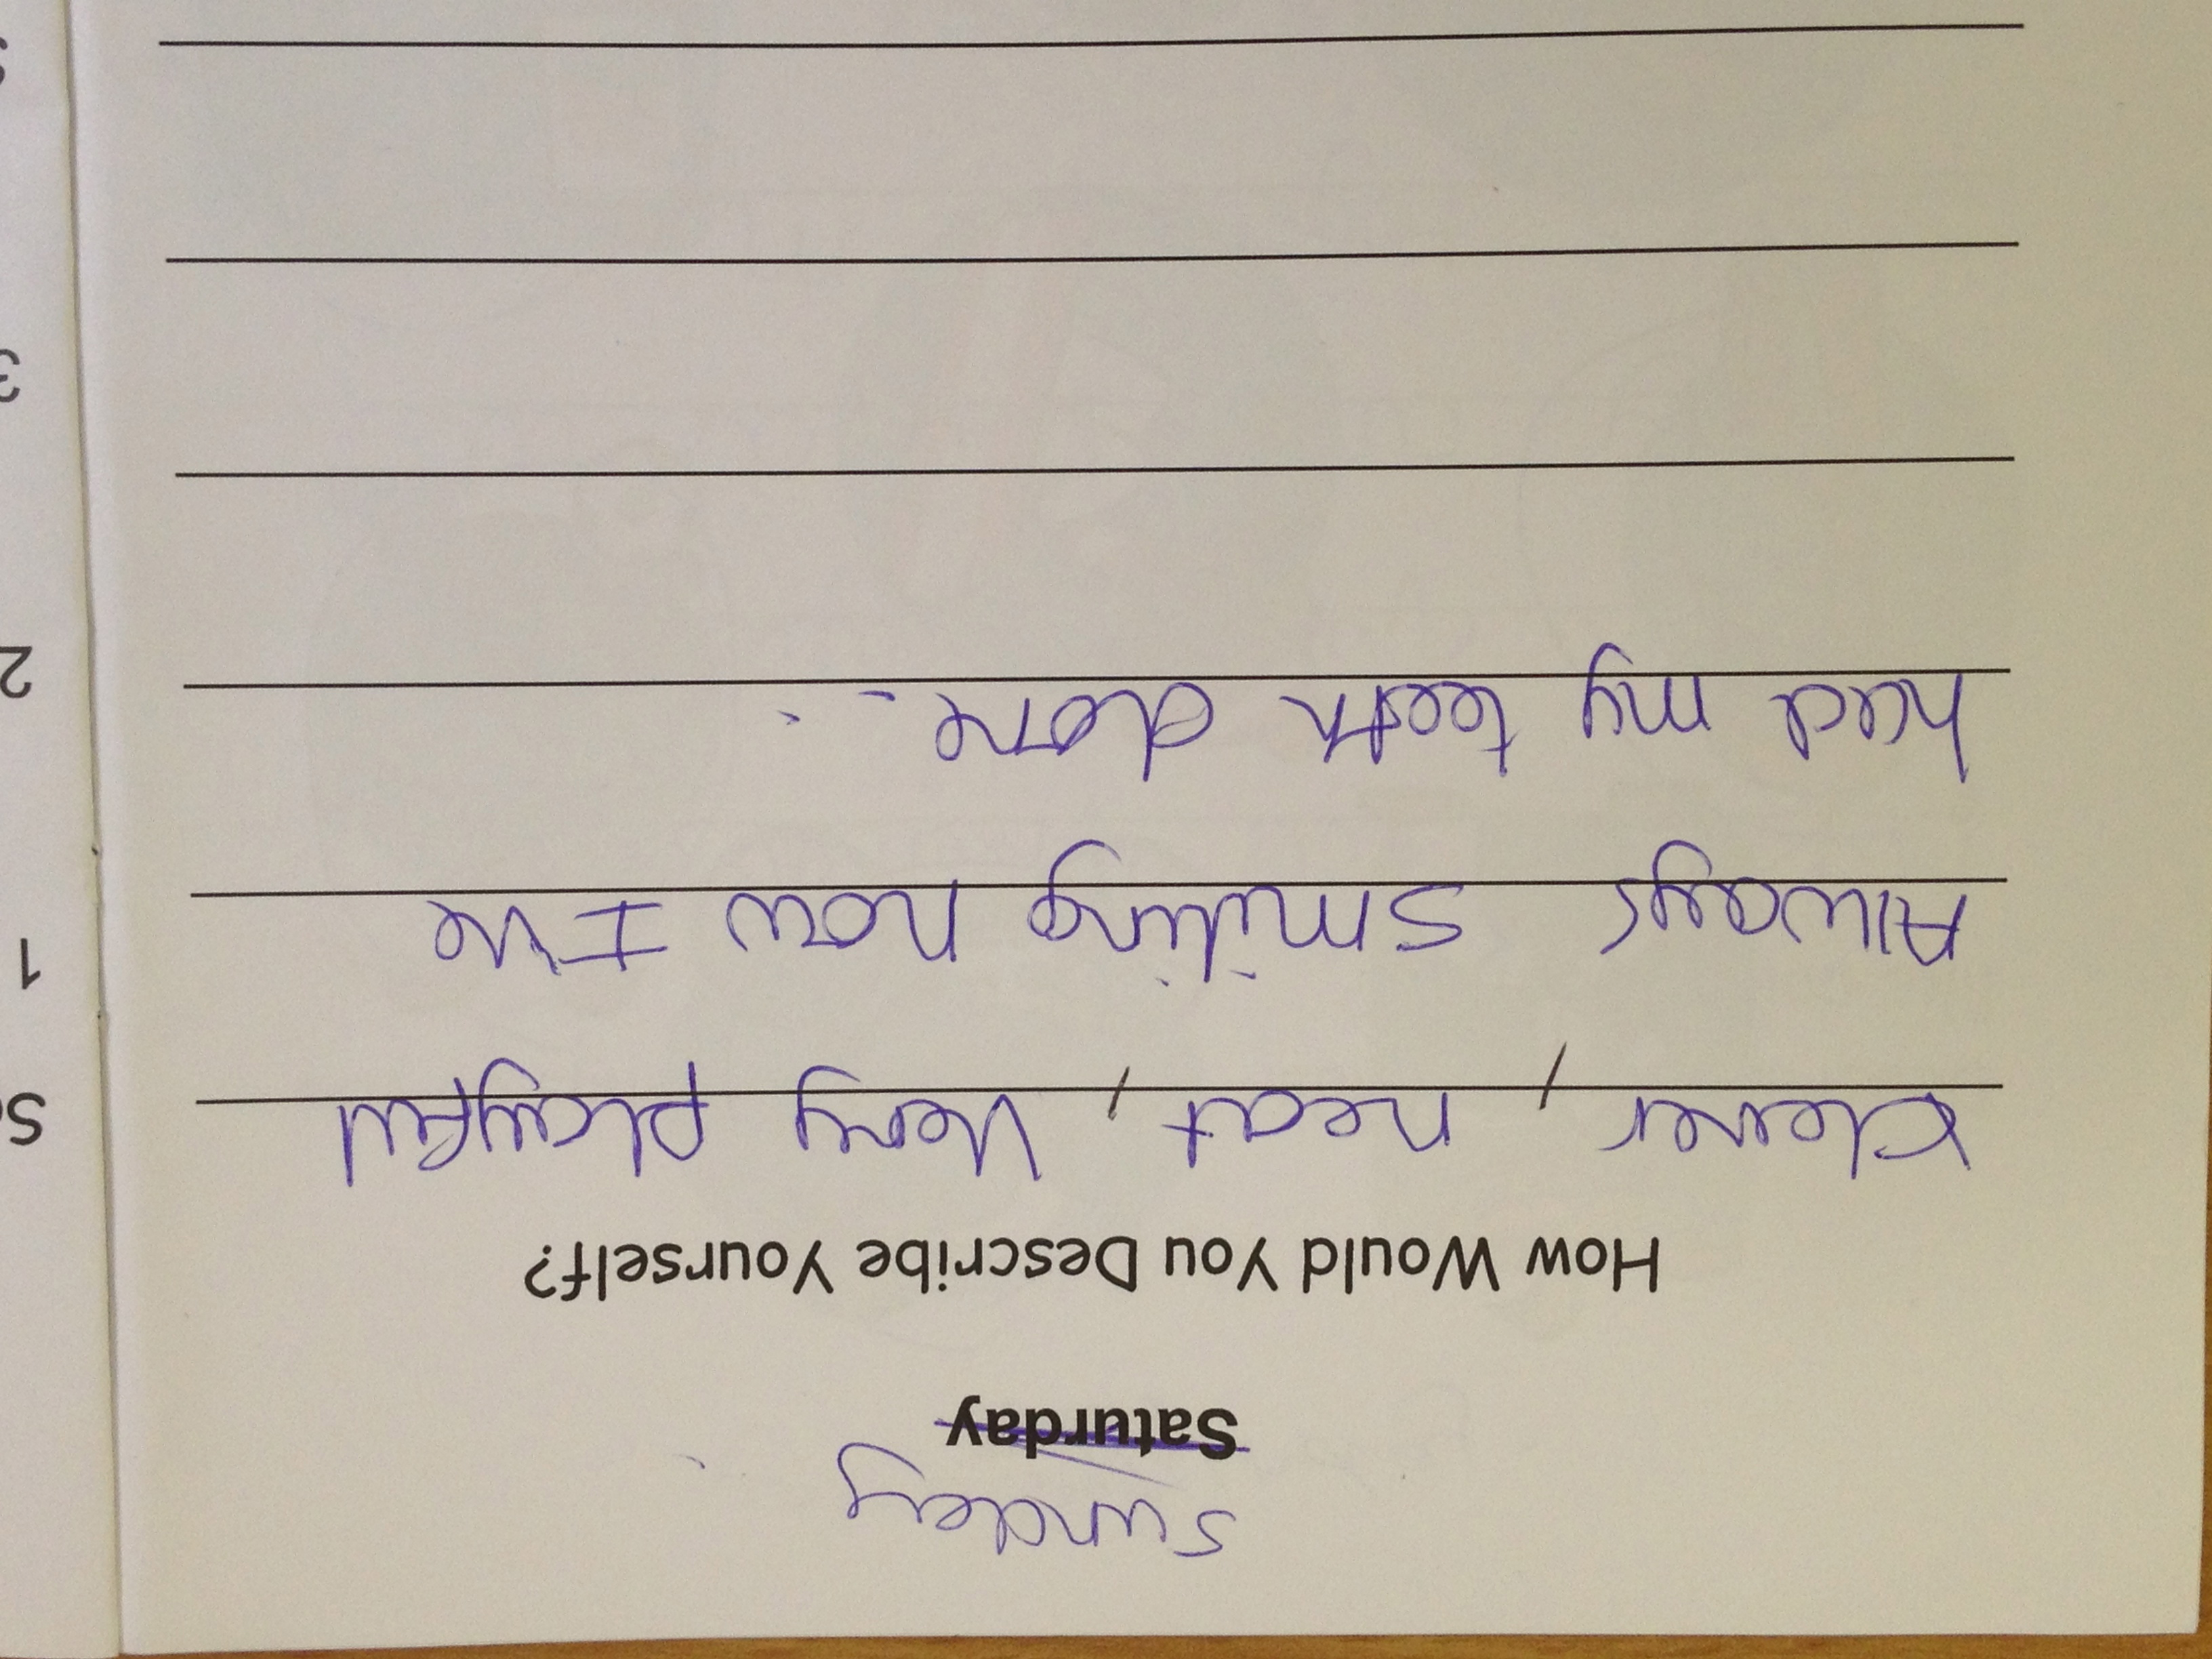 Sunday
Saturday
How Would You Describe Yourself?
neat, Very playful
Always smiling now I've
had my teeth done..
1
2
3